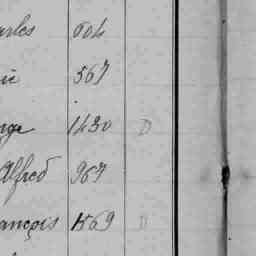 arles 604
ie 567
nge 1430 D
Alfred 967
ançois 1569 D